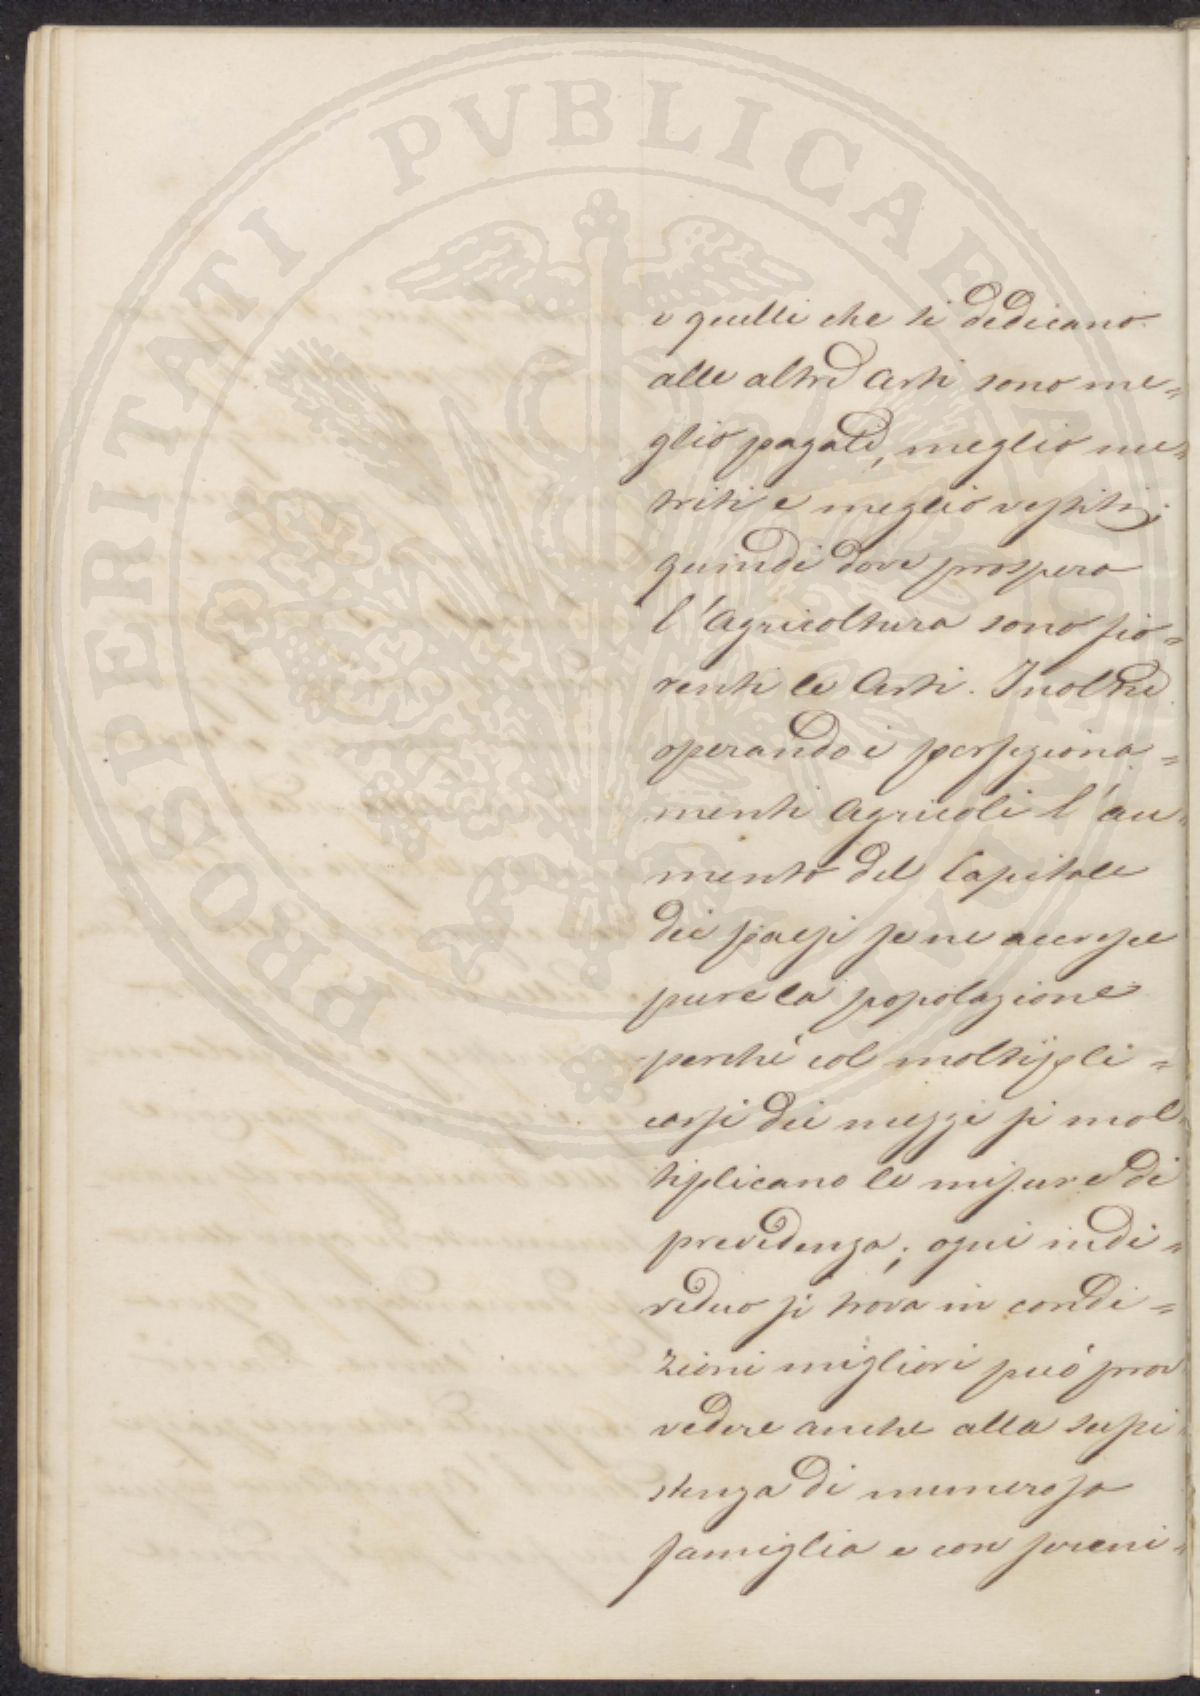 PROSPERITATI PVBLICAE
e quelli che si dedicano
alle altre Arti sono me=
glio pagati, meglio nu=
triti e meglio vestiti;
quindi dove prospera
l'Agricoltura sono fio=
renti le Arti. Inoltre
operando i perfeziona=
menti Agricoli l'au=
mento del Capitale
dei paesi se ne accresce
pure la popolazione
perchè col moltipli=
carsi dei mezzi si mol=
tiplicano le misure di
previdenza; ogni indi=
viduo si trova in condi=
zioni migliori può prov
vedere anche alla sussi=
stenza di numerosa
famiglia e con sereni=